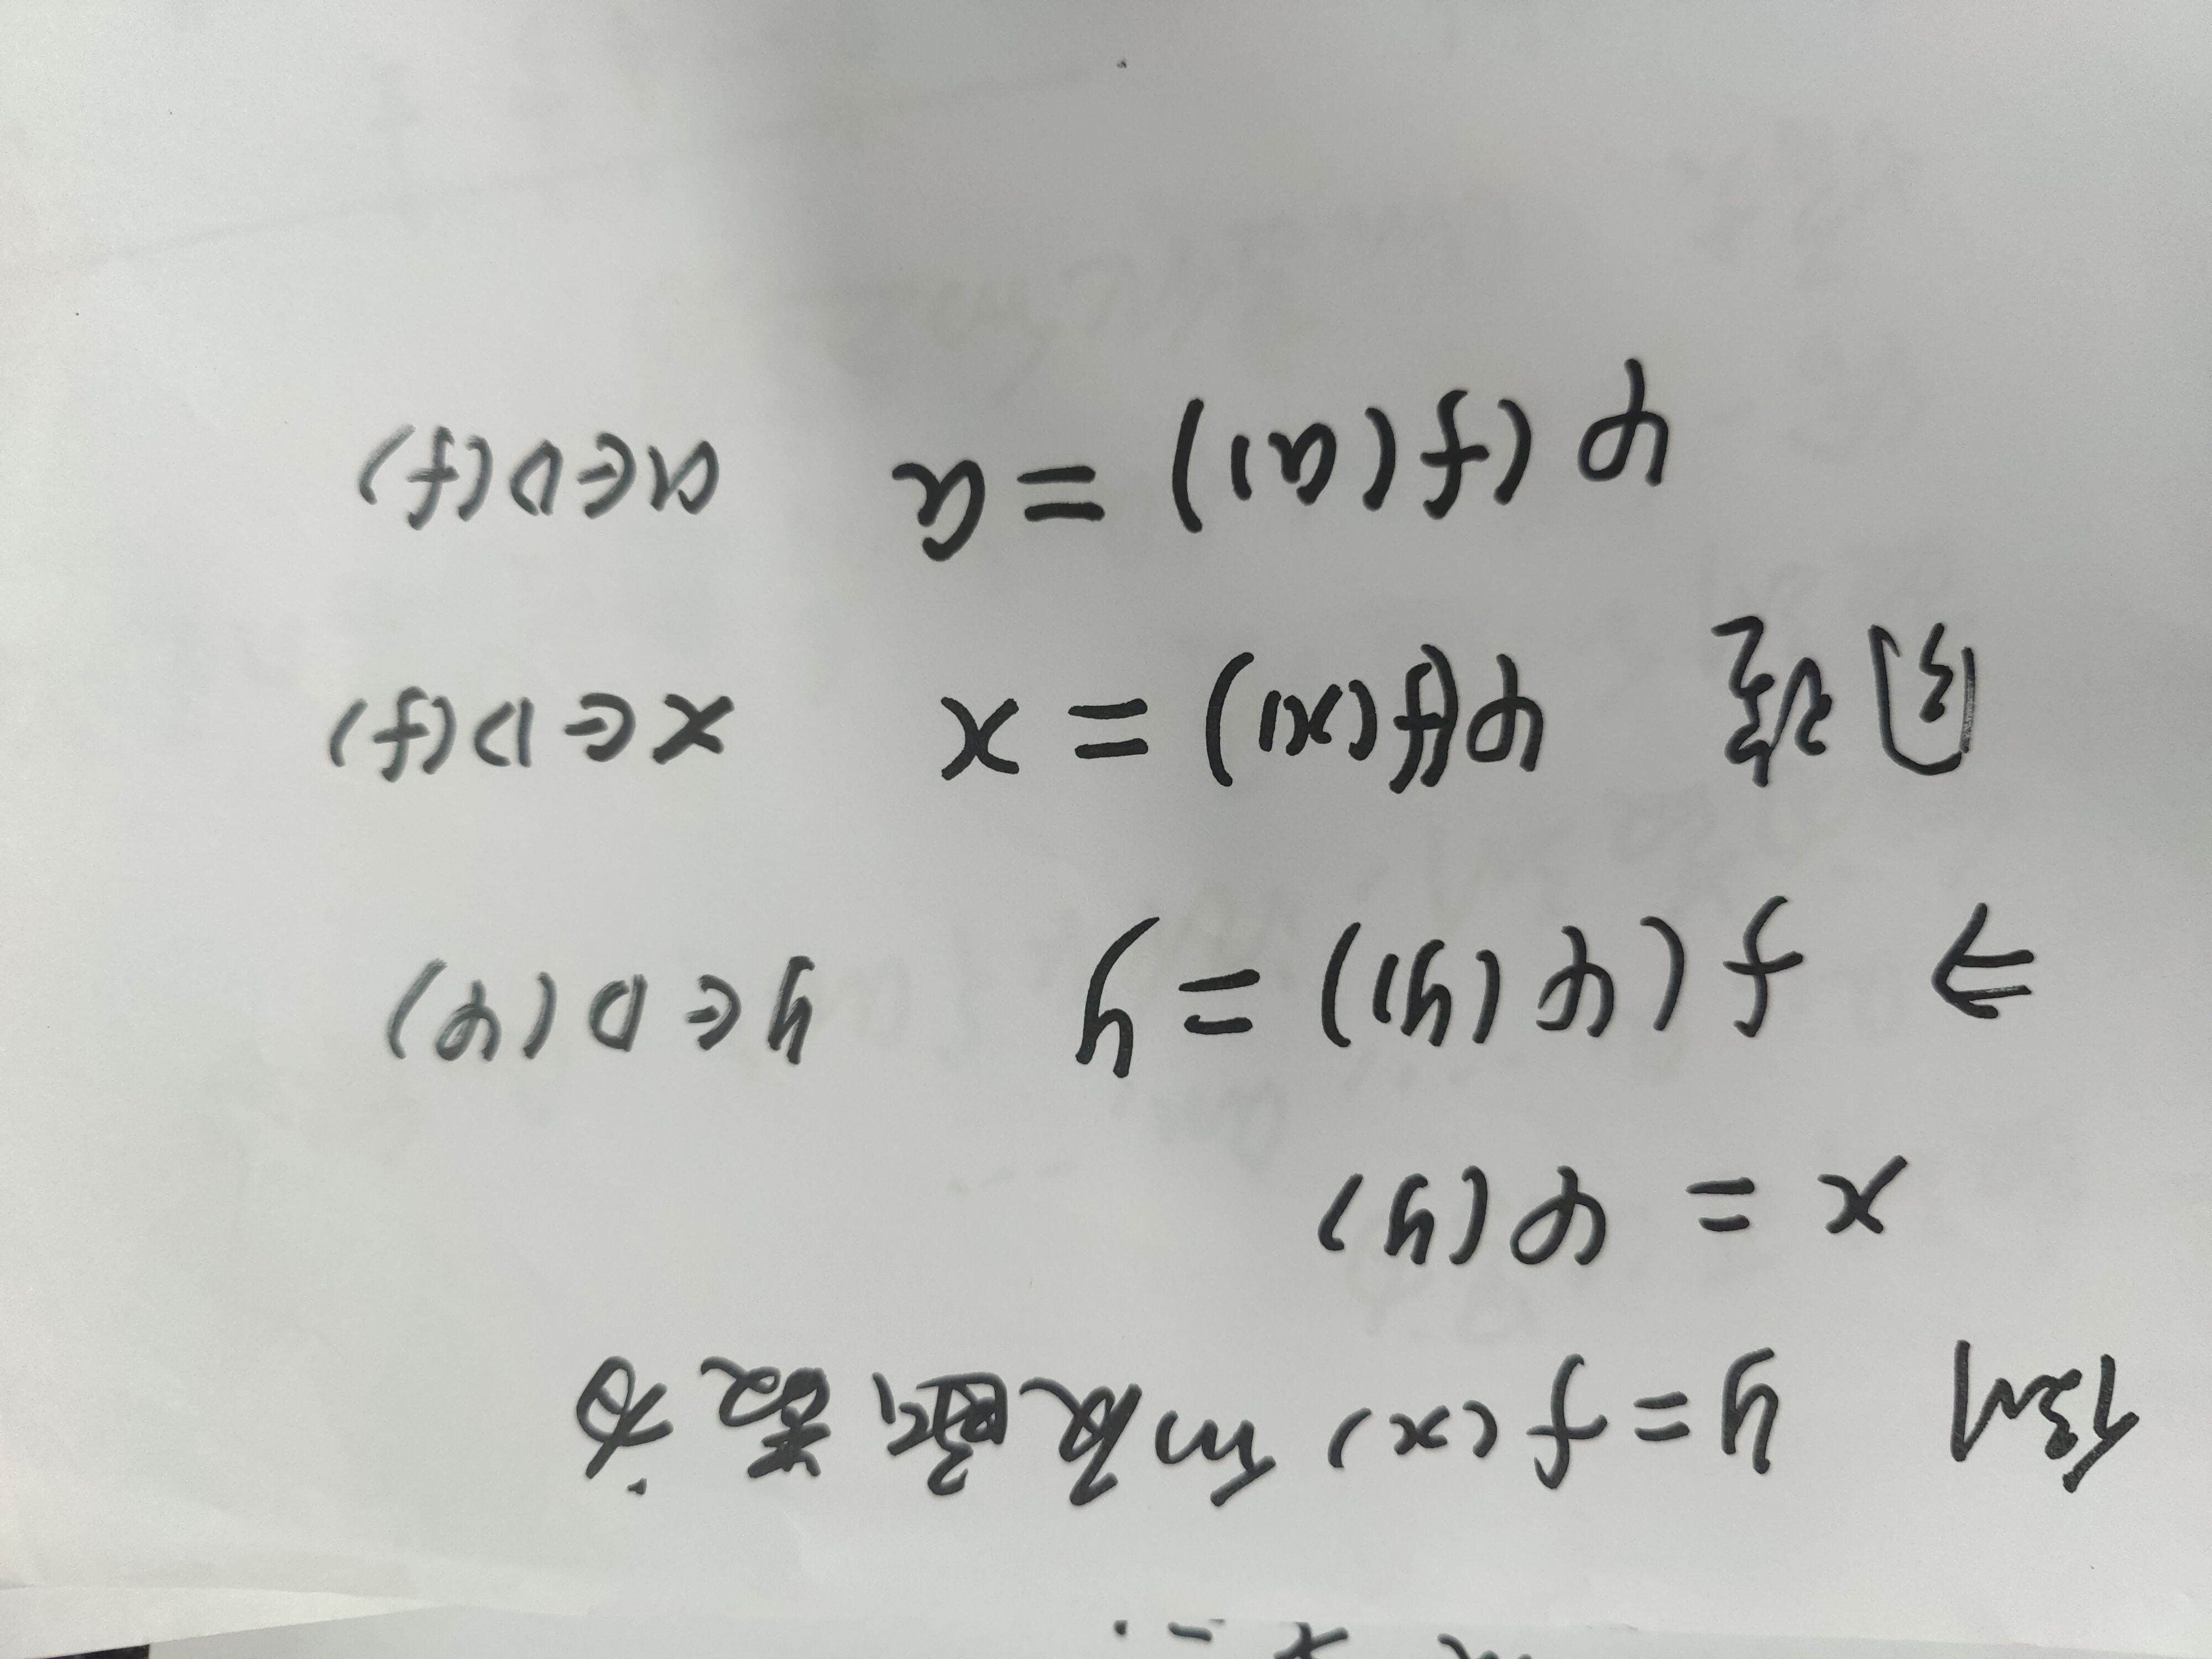 例 y=f(x) 的反函数为
x = φ(y)
⇒ f(φ(y))=y y∈D(φ)
φ(f(x))=x x∈D(f)
φ(f(a))=a a∈D(f)